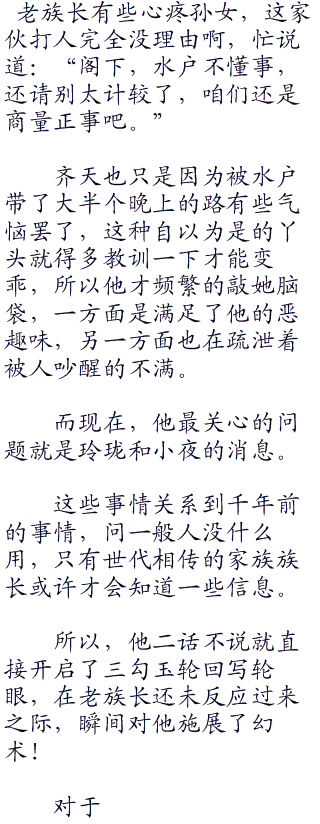 老族长有些心疼孙女，这家
伙打人完全没理由啊，忙说
道：“阁下，水户不懂事，
还请别太计较了，咱们还是
商量正事吧。”
齐天也只是因为被水户
带了大半个晚上的路有些气
恼罢了，这种自以为是的丫
头就得多教训一下才能变
乖，所以他才频繁的敲她脑
袋，一方面是满足了他的恶
趣味，另一方面也在疏泄着
被人吵醒的不满。
而现在，他最关心的问
题就是玲珑和小夜的消息。
这些事情关系到千年前
的事情，问一般人没什么
用，只有世代相传的家族族
长或许才会知道一些信息。
所以，他二话不说就直
接开启了三勾玉轮回写轮
眼，在老族长还未反应过来
之际，瞬间对他施展了幻
术！
对于